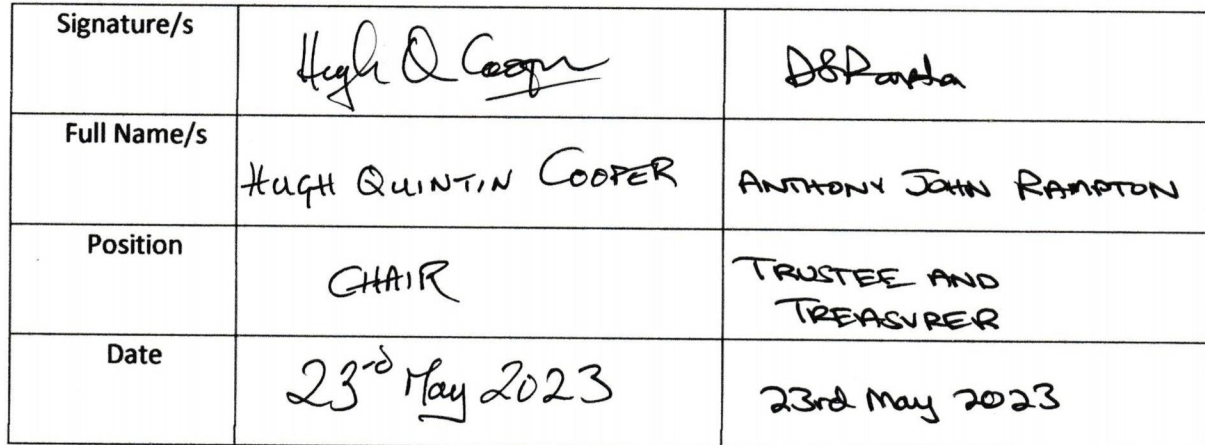 Signature/s Hugh Q Cooper
Full Name/s HUGH QUINTIN COOPER ANTHONY JOHN RAMPTON
Position CHAIR TRUSTEE AND
TREASURER
Date 23rd May 2023 23rd May 2023